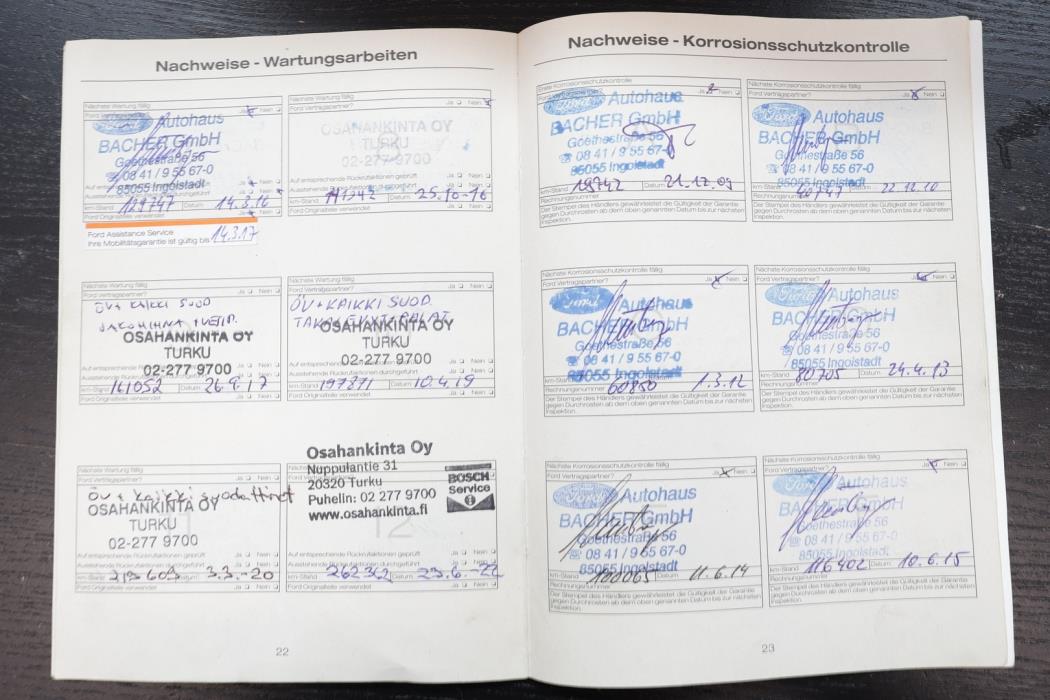 Nachweise - Wartungsarbeiten
Nächste Wartung fällig
Ford Vertragspartner? Ja Nein
Ford Autohaus
BACHER GmbH
Goethestraße 56
☎ 08 41 / 9 55 67-0
85055 Ingolstadt
km-Stand 129747 Datum 14.3.16
Ford Originalteile verwendet Ja Nein
Ford Assistance Service
Ihre Mobilitätsgarantie ist gültig bis 14.3.17
Nächste Wartung fällig
Ford Vertragspartner? Ja Nein
OSAHANKINTA OY
TURKU
02-277 9700
Datum 25.10-16
Ford Originalteile verwendet Ja Nein
Nächste Wartung fällig
Ford Vertragspartner? Ja Nein
ÖV + KAIKKI SUOD
JAKOHIHNA
OSAHANKINTA OY
TURKU
02-277 9700
Auf entsprechende Rückrufaktionen geprüft Ja Nein
Ausstehende Rückrufaktionen durchgeführt Ja Nein
161052 Datum 26.9.17
Ford Originalteile verwendet Ja Nein
Nächste Wartung fällig
Ford Vertragspartner? Ja Nein
ÖV + KAIKKI SUOD.
OSAHANKINTA OY
TURKU
02-277 9700
Auf entsprechende Rückrufaktionen geprüft Ja Nein
Ausstehende Rückrufaktionen durchgeführt Ja Nein
km-Stand 197371 Datum 10.4.19
Ford Originalteile verwendet Ja Nein
Nächste Wartung fällig
Ford Vertragspartner? Ja Nein
ÖV + kaikki suodattimet
OSAHANKINTA OY
TURKU
02-277 9700
Auf entsprechende Rückrufaktionen geprüft Ja Nein
Ausstehende Rückrufaktionen durchgeführt Ja Nein
km-Stand 219603 Datum 3.3.-20
Ford Originalteile verwendet Ja Nein
Osahankinta Oy
Nuppulantie 31
20320 Turku
Puhelin: 02 277 9700
www.osahankinta.fi
BOSCH
Service
Auf entsprechende Rückrufaktionen geprüft Ja Nein
Ausstehende Rückrufaktionen durchgeführt Ja Nein
km-Stand 262362 Datum 23.6.-22
Ford Originalteile verwendet Ja Nein
22
Nachweise - Korrosionsschutzkontrolle
Erste Korrosionsschutzkontrolle
Ford Vertragspartner? Ja Nein
Ford Autohaus
BACHER GmbH
Goethestraße 56
☎ 08 41 / 9 55 67-0
85055 Ingolstadt
km-Stand 18742 Datum 21.12.09
Rechnungsnummer
Der Stempel des Händlers gewährleistet die Gültigkeit der Garantie
gegen Durchrosten ab dem oben genannten Datum bis zur nächsten
Inspektion.
Nächste Korrosionsschutzkontrolle fällig
Ford Vertragspartner? Ja Nein
Ford Autohaus
BACHER GmbH
Goethestraße 56
☎ 08 41 / 9 55 67-0
85055 Ingolstadt
km-Stand Datum 22.12.10
Rechnungsnummer
Der Stempel des Händlers gewährleistet die Gültigkeit der Garantie
gegen Durchrosten ab dem oben genannten Datum bis zur nächsten
Inspektion.
Nächste Korrosionsschutzkontrolle fällig
Ford Vertragspartner? Ja Nein
Ford Autohaus
BACHER GmbH
Goethestraße 56
☎ 08 41 / 9 55 67-0
85055 Ingolstadt
km-Stand 60850 1.3.12
Rechnungsnummer
Der Stempel des Händlers gewährleistet die Gültigkeit der Garantie
gegen Durchrosten ab dem oben genannten Datum bis zur nächsten
Inspektion.
Nächste Korrosionsschutzkontrolle fällig
Ford Vertragspartner? Ja Nein
Ford Autohaus
BACHER GmbH
Goethestraße 56
☎ 08 41 / 9 55 67-0
85055 Ingolstadt
km-Stand 80705 Datum 24.4.13
Rechnungsnummer
Der Stempel des Händlers gewährleistet die Gültigkeit der Garantie
gegen Durchrosten ab dem oben genannten Datum bis zur nächsten
Inspektion.
Nächste Korrosionsschutzkontrolle fällig
Ford Vertragspartner? Ja Nein
Ford Autohaus
BACHER GmbH
Goethestraße 56
☎ 08 41 / 9 55 67-0
85055 Ingolstadt
km-Stand 100065 Datum 11.6.14
Rechnungsnummer
Der Stempel des Händlers gewährleistet die Gültigkeit der Garantie
gegen Durchrosten ab dem oben genannten Datum bis zur nächsten
Inspektion.
Nächste Korrosionsschutzkontrolle fällig
Ford Vertragspartner? Ja Nein
Ford Autohaus
BACHER GmbH
Goethestraße 56
☎ 08 41 / 9 55 67-0
85055 Ingolstadt
km-Stand 116402 Datum 10.6.15
Rechnungsnummer
Der Stempel des Händlers gewährleistet die Gültigkeit der Garantie
gegen Durchrosten ab dem oben genannten Datum bis zur nächsten
Inspektion.
23